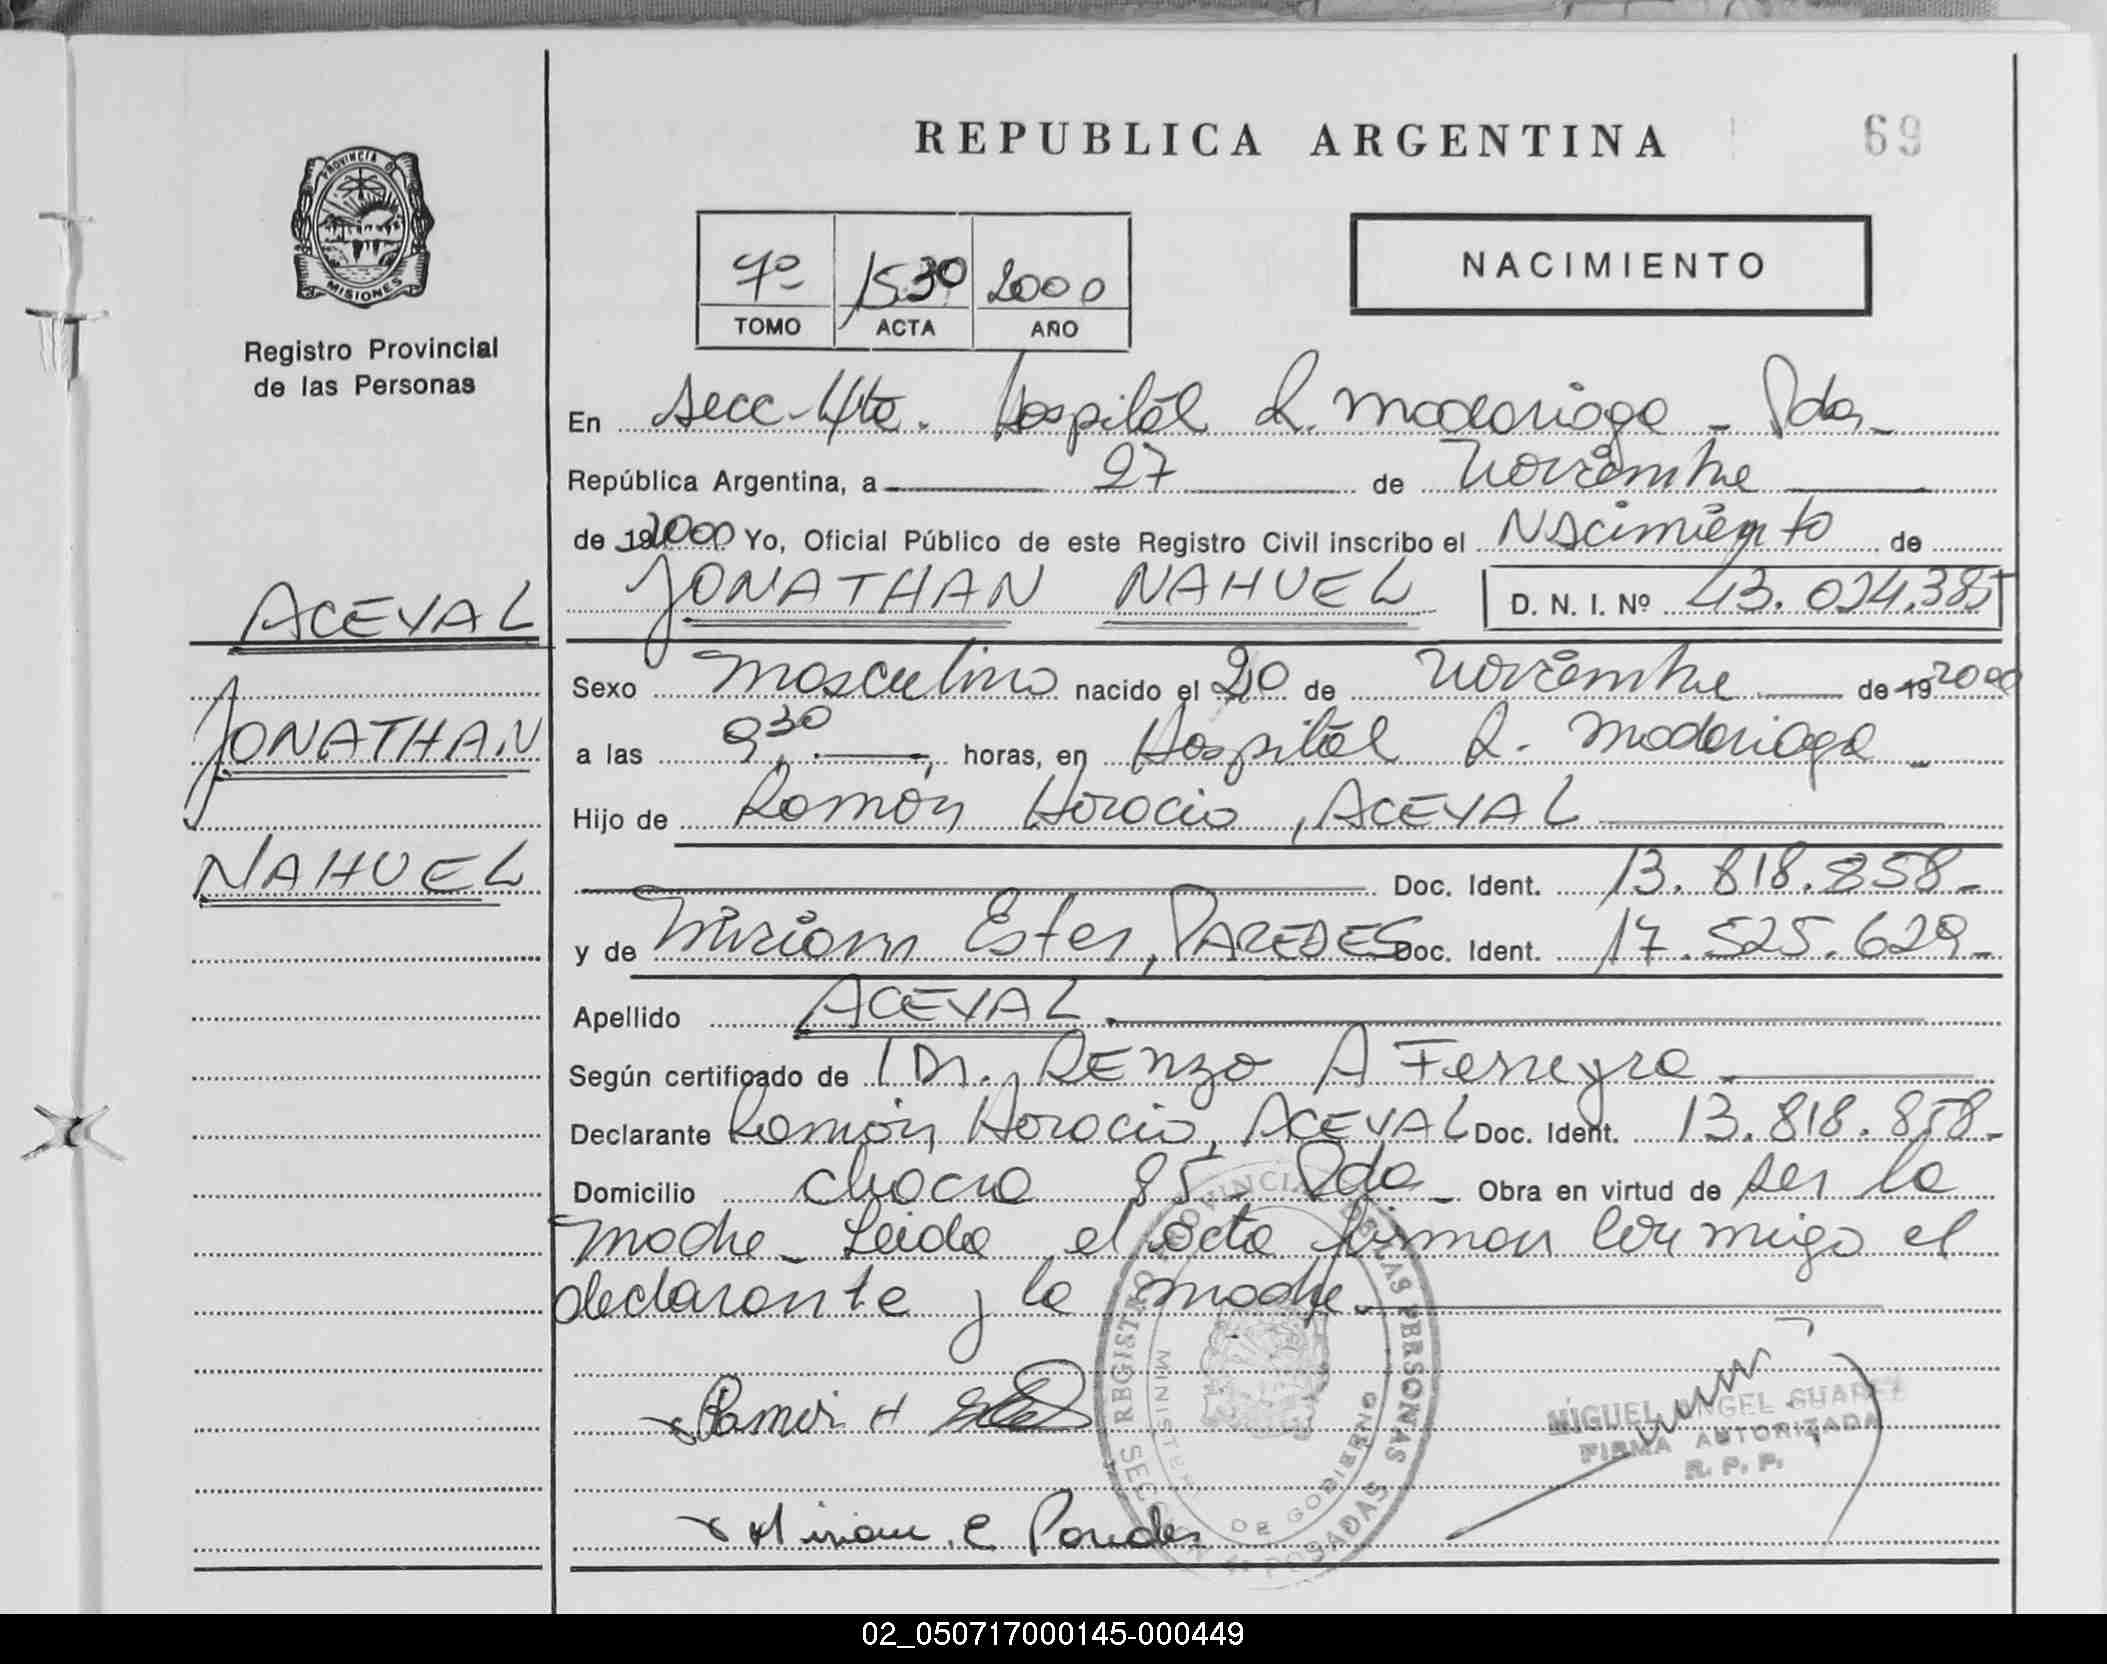 REPUBLICA ARGENTINA
69
PROVINCIA DE
MISIONES
Registro Provincial
de las Personas
7º 1530 2000
TOMO ACTA AÑO
NACIMIENTO
En Secc. 4ta. Hospital R. Madariaga - Pdas -
República Argentina, a 27 de Noviembre
de 192000 Yo, Oficial Público de este Registro Civil inscribo el Nacimiento de
JONATHAN NAHUEL D. N. I. Nº 43.024.385
ACEVAL
JONATHAN
NAHUEL
Sexo Masculino nacido el 20 de Noviembre de 19 2000
a las 9,30 horas, en Hospital R. Madariaga -
Hijo de Ramón Horacio, ACEVAL
Doc. Ident. 13.818.858 -
y de Miriam Ester, PAREDES Doc. Ident. 17.525.629 -
Apellido ACEVAL.
Según certificado de Dr. Renzo A Ferreyra -
Declarante Ramón Horacio, ACEVAL Doc. Ident. 13.818.858 -
Domicilio chacra 85 Pdas - Obra en virtud de ser la
madre - Leida el acta firman conmigo el
declarante y la madre.
Ramon H
Miriam. E. Paredes
REGISTRO PROVINCIAL DE LAS PERSONAS
MINISTERIO DE GOBIERNO
POSADAS
MIGUEL ANGEL SUAREZ
FIRMA AUTORIZADA
R. P. P.
02_050717000145-000449